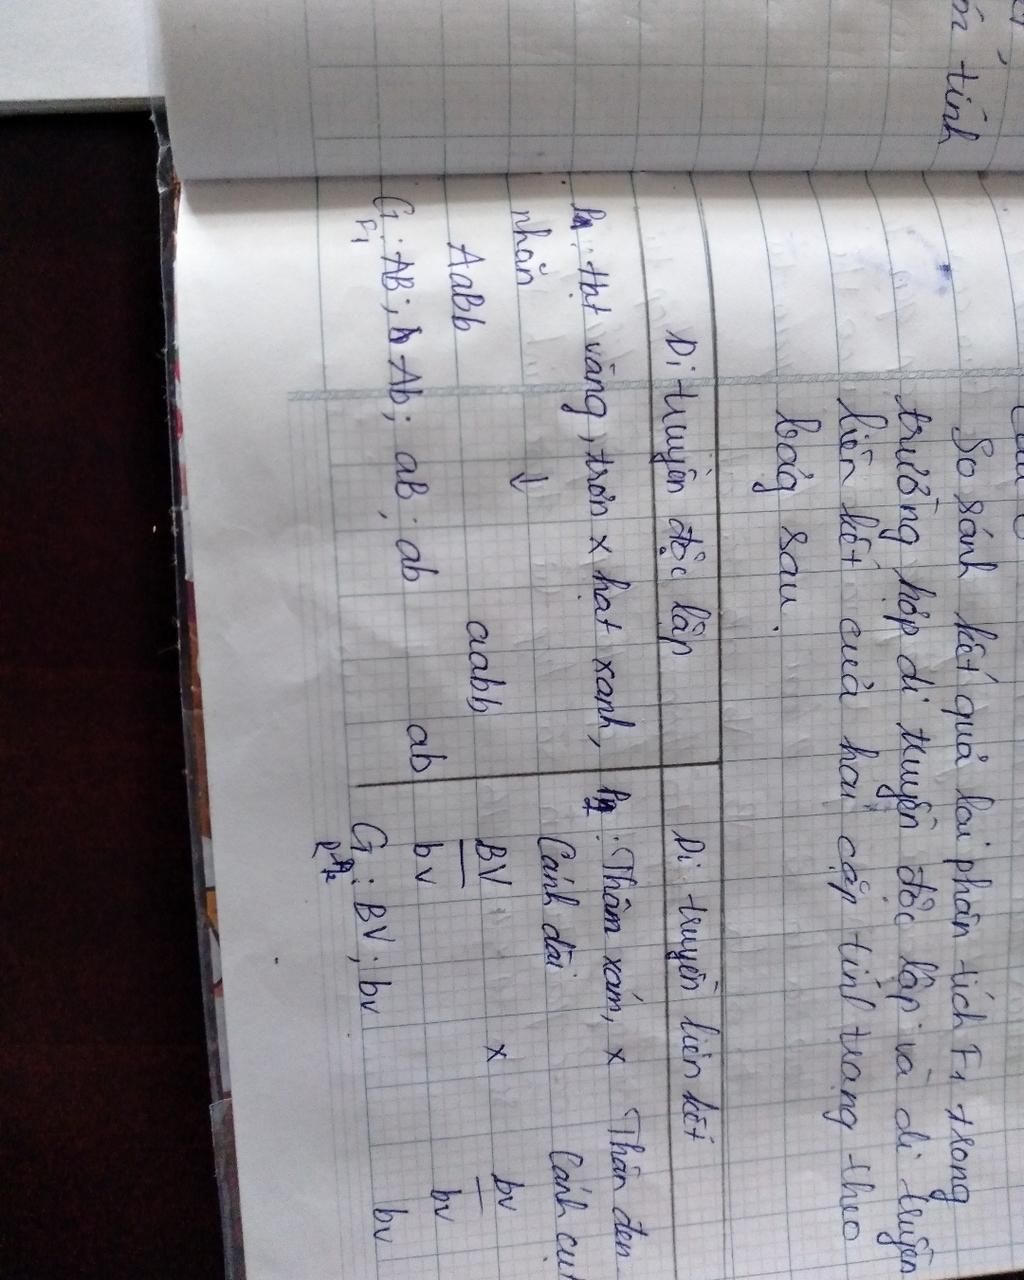 tính
So sánh kết quả lai phân tích F1 trong
trường hợp di truyền độc lập và di truyền
liên kết của hai cặp tính trạng theo
bảg sau.
Di truyền độc lập
Di truyền liên kết
: Hạt vàng, trơn x hạt xanh,
nhăn
: Thân xám, x Thân đen
Cánh dài Cánh cụt
AaBb ↓ aabb
BV x bv
bv bv
GF1: AB; Ab; aB; ab ab
G : BV; bv bv